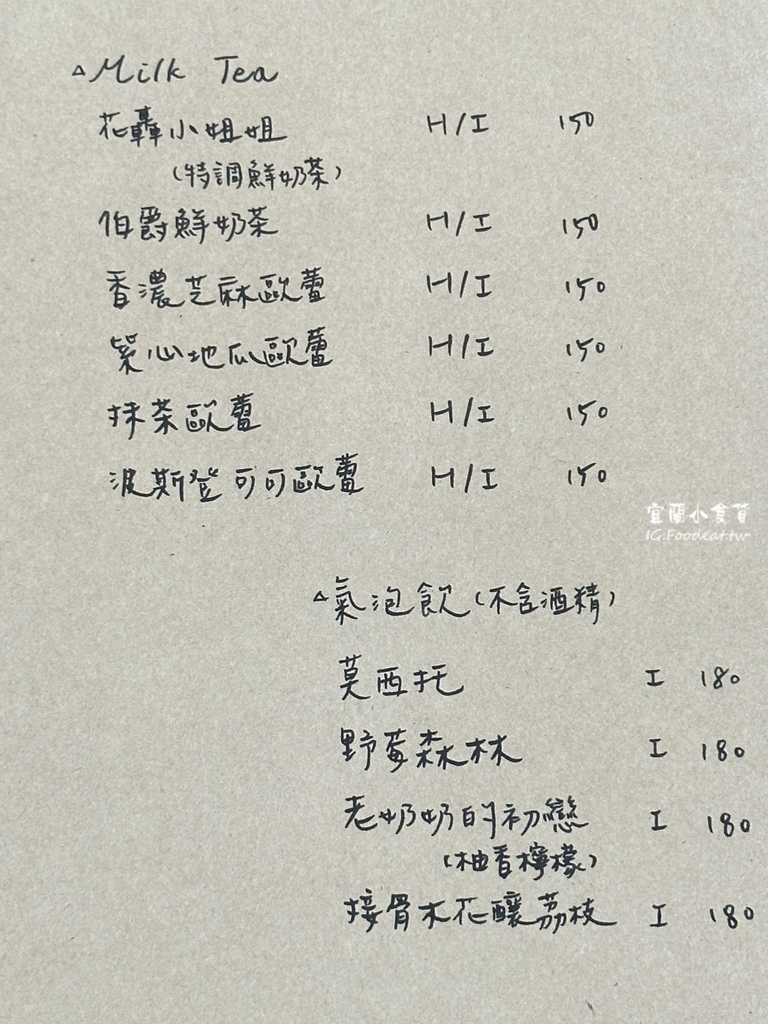 △Milk Tea
花轟小姐姐 H/I 150
(特調鮮奶茶)
伯爵鮮奶茶 H/I 150
香濃芝麻歐蕾 H/I 150
紫心地瓜歐蕾 H/I 150
抹茶歐蕾 H/I 150
波斯登可可歐蕾 H/I 150
宜蘭小食背
IG.Foodeat.tw
△氣泡飲(不含酒精)
莫西托 I 180
野莓森林 I 180
老奶奶的初戀 I 180
(柚香檸檬)
接骨木花釀荔枝 I 180